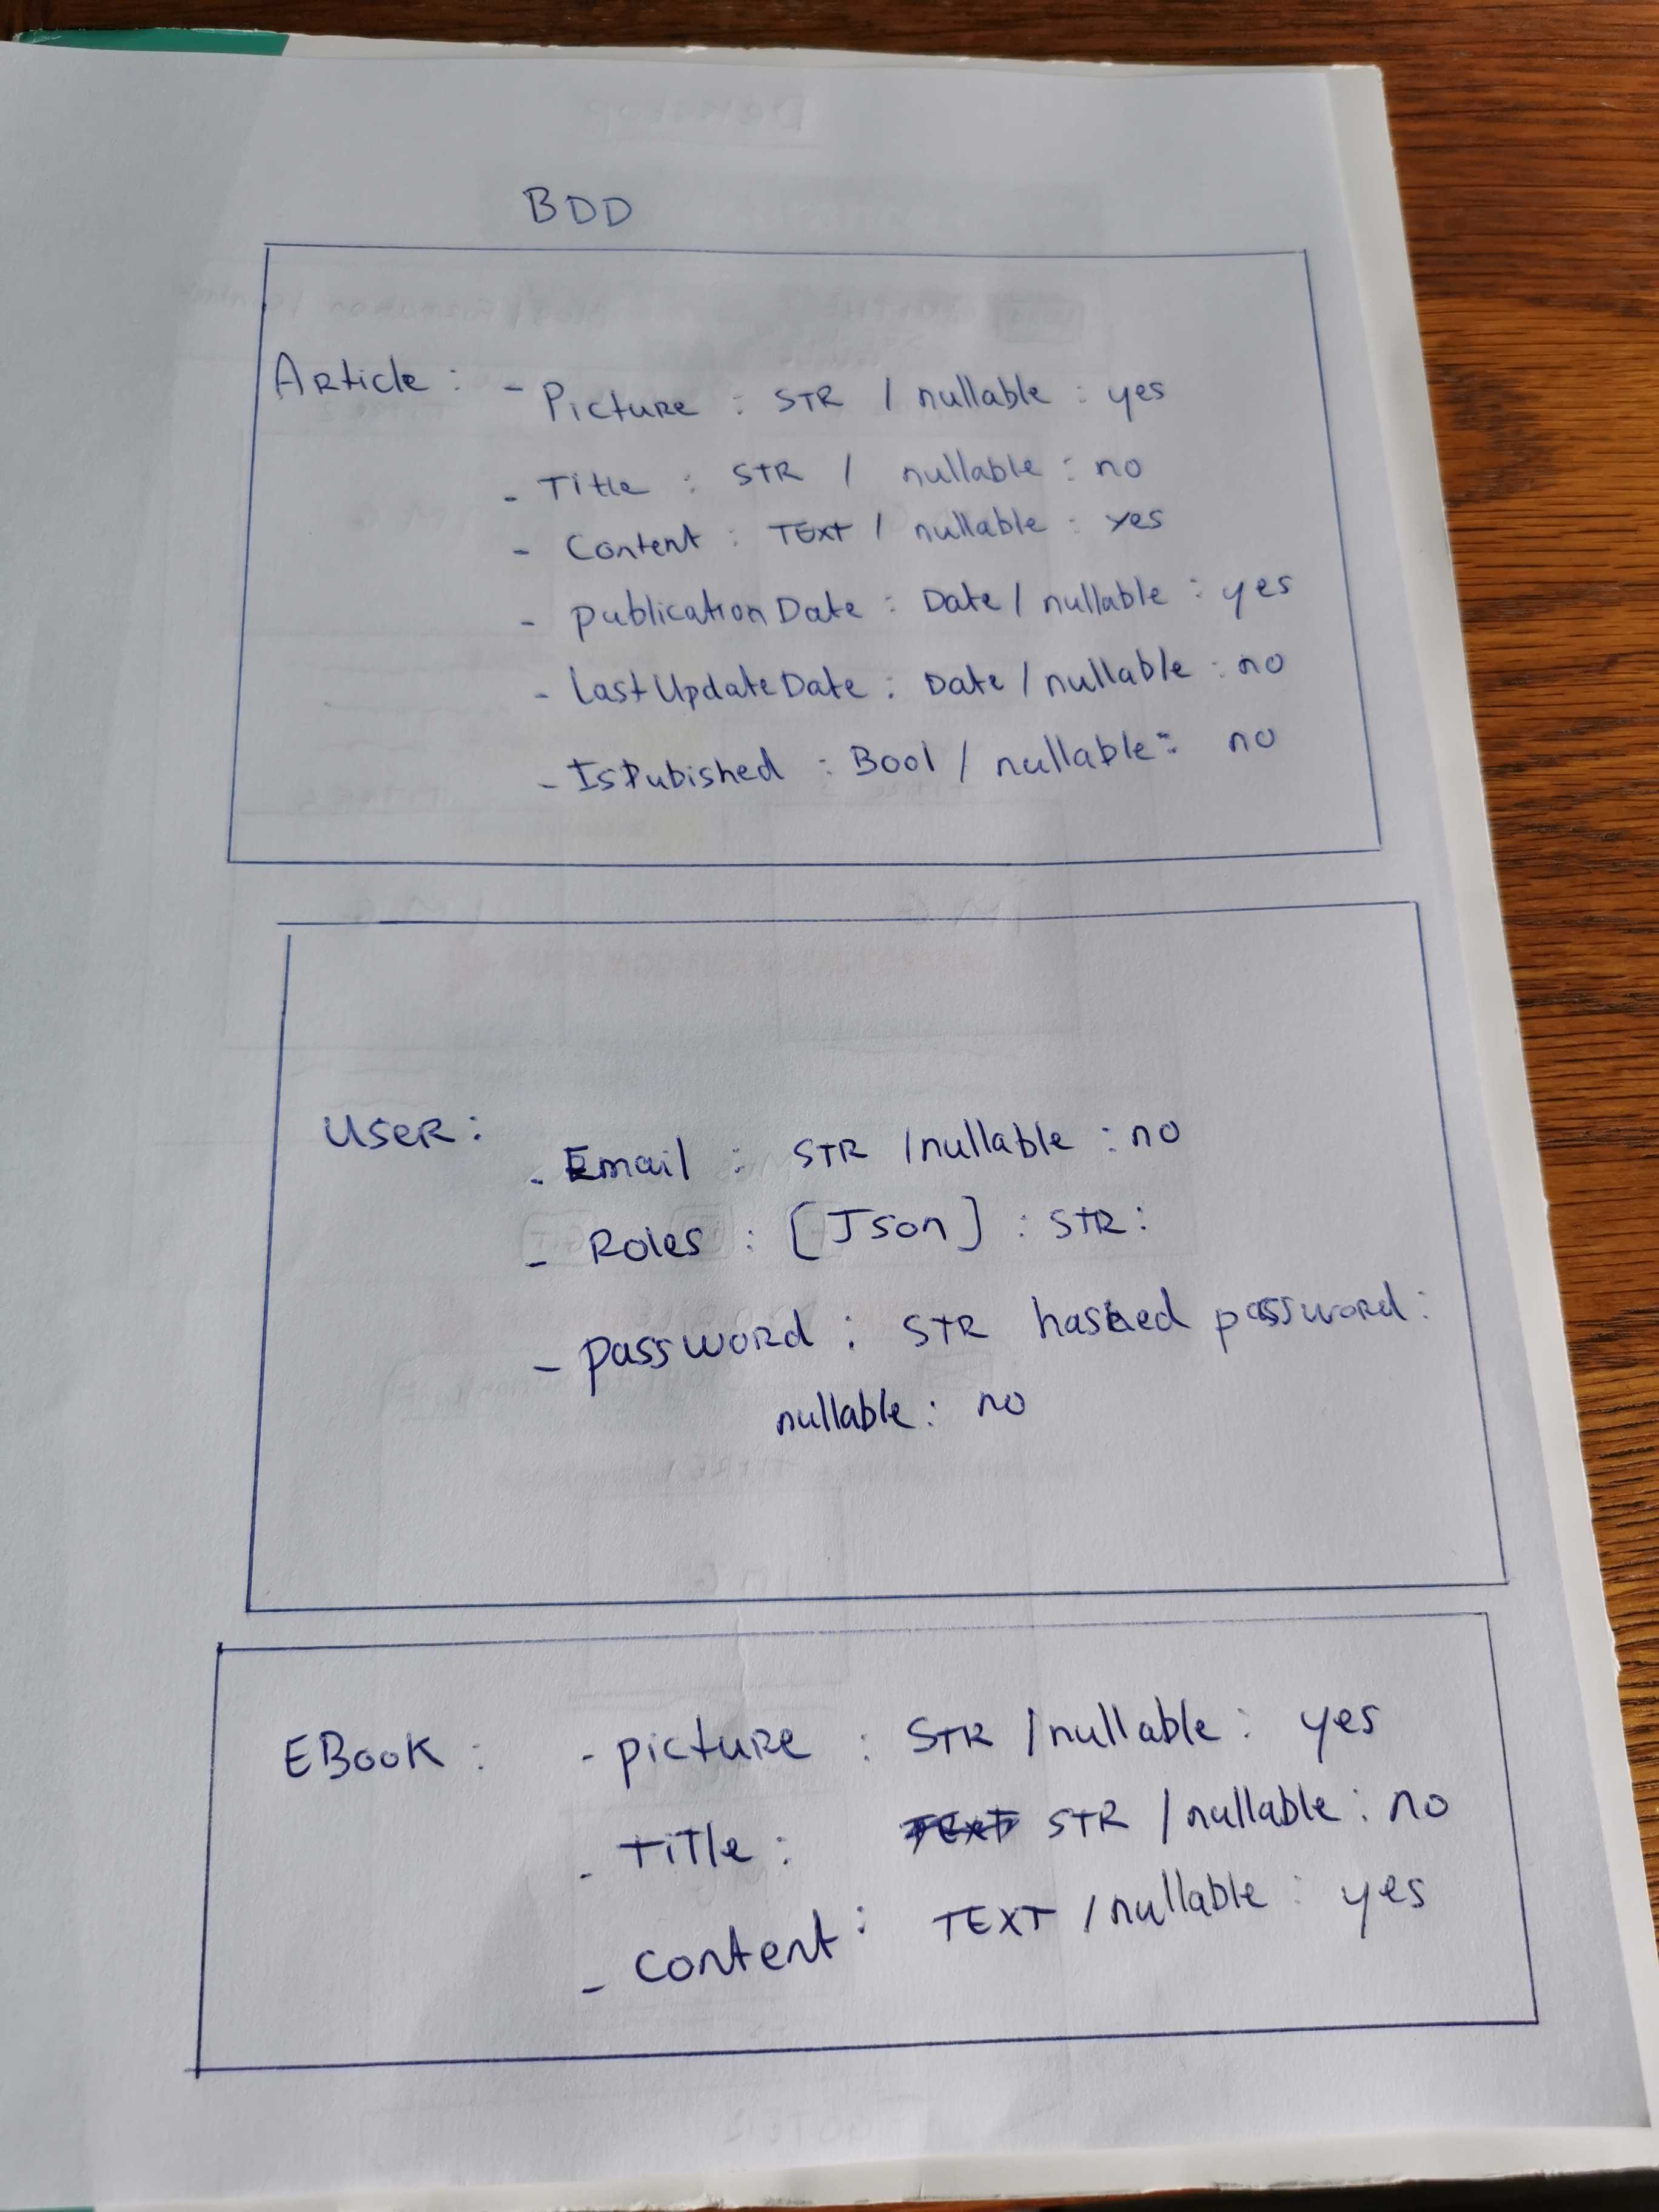 BDD
Article : - Picture : STR / nullable : yes
- Title : STR / nullable : no
- Content : TEXT / nullable : yes
- publicationDate : Date / nullable : yes
- LastUpdateDate : Date / nullable : no
- IsPubished : Bool / nullable : no
USER :
- Email : STR / nullable : no
- Roles : [Json] : STR :
- password : STR hashed password :
nullable : no
EBook : - picture : STR / nullable : yes
- Title : TEXT STR / nullable : no
- content : TEXT / nullable : yes